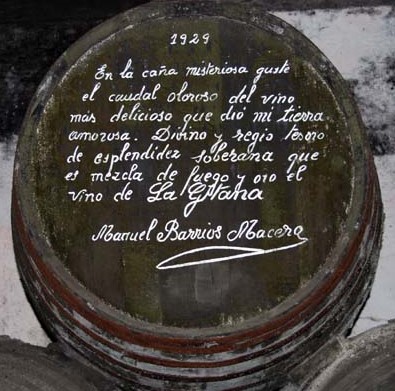 1929
En la caña misteriosa guste
el caudal oloroso del vino
mas delicioso que dió mi tierra
amorosa. Divino y regio tesoro
de esplendidez soberana que
es mezcla de fuego y oro el
vino de La Gitana
Manuel Barrios Macero